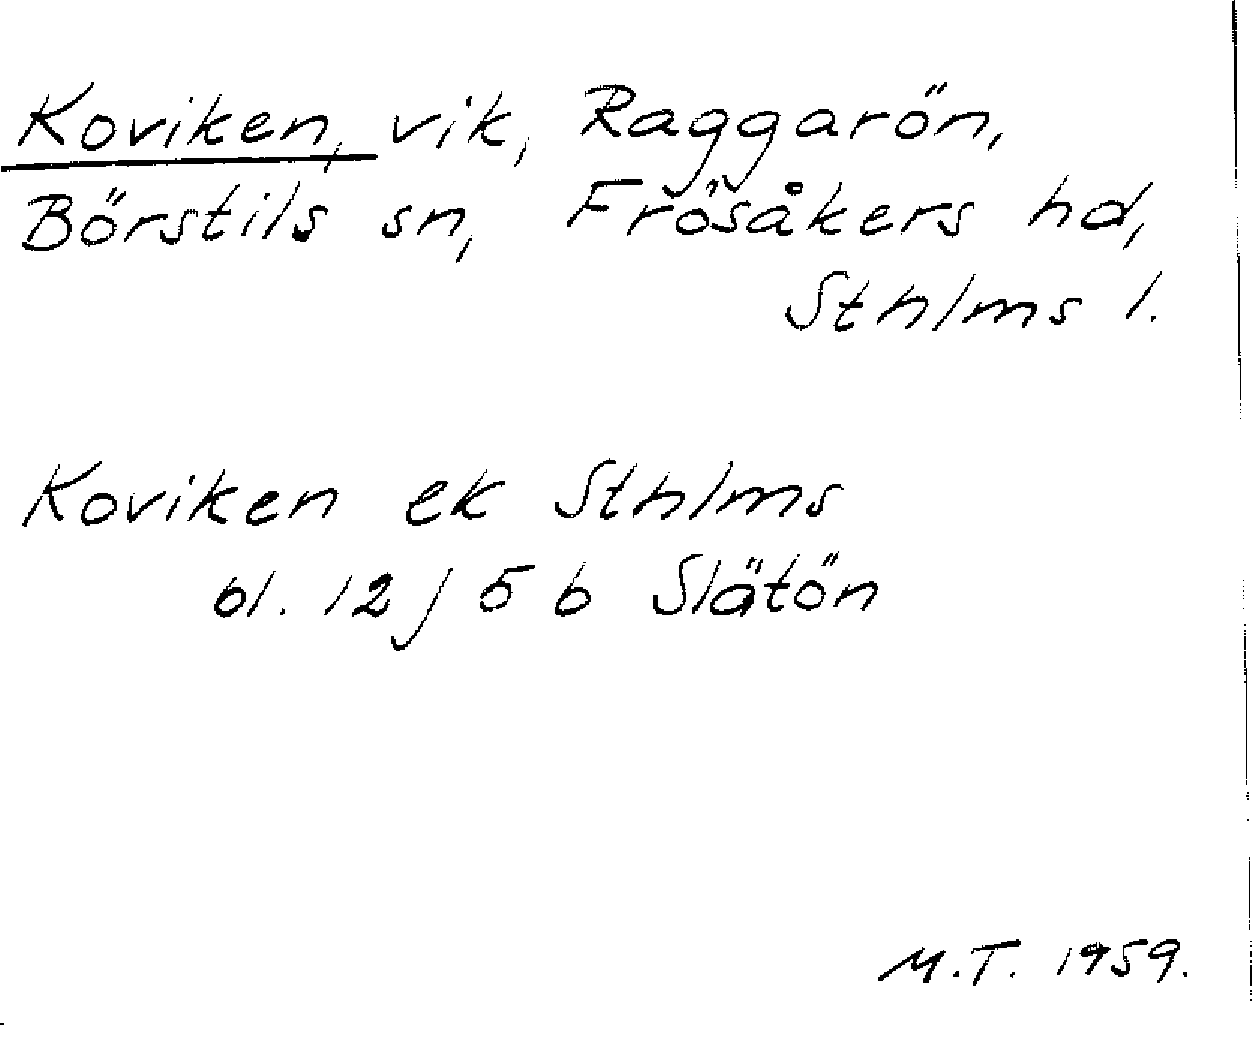 Koviken, vik, Raggarön,
Börstils sn, Frösåkers hd,
Sthlms l.
Koviken ek Sthlms
bl. 12 j 5 b Slätön
M.T. 1959.